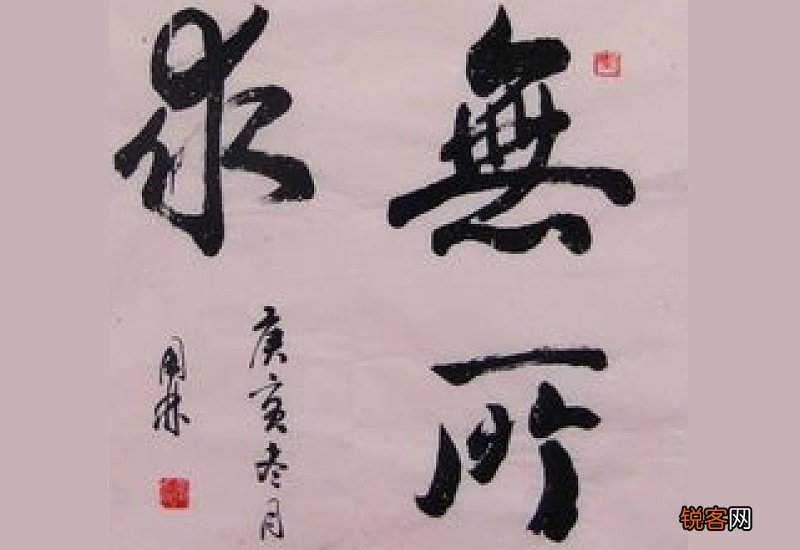 無所
求
庚亥冬月
周林
锐客网